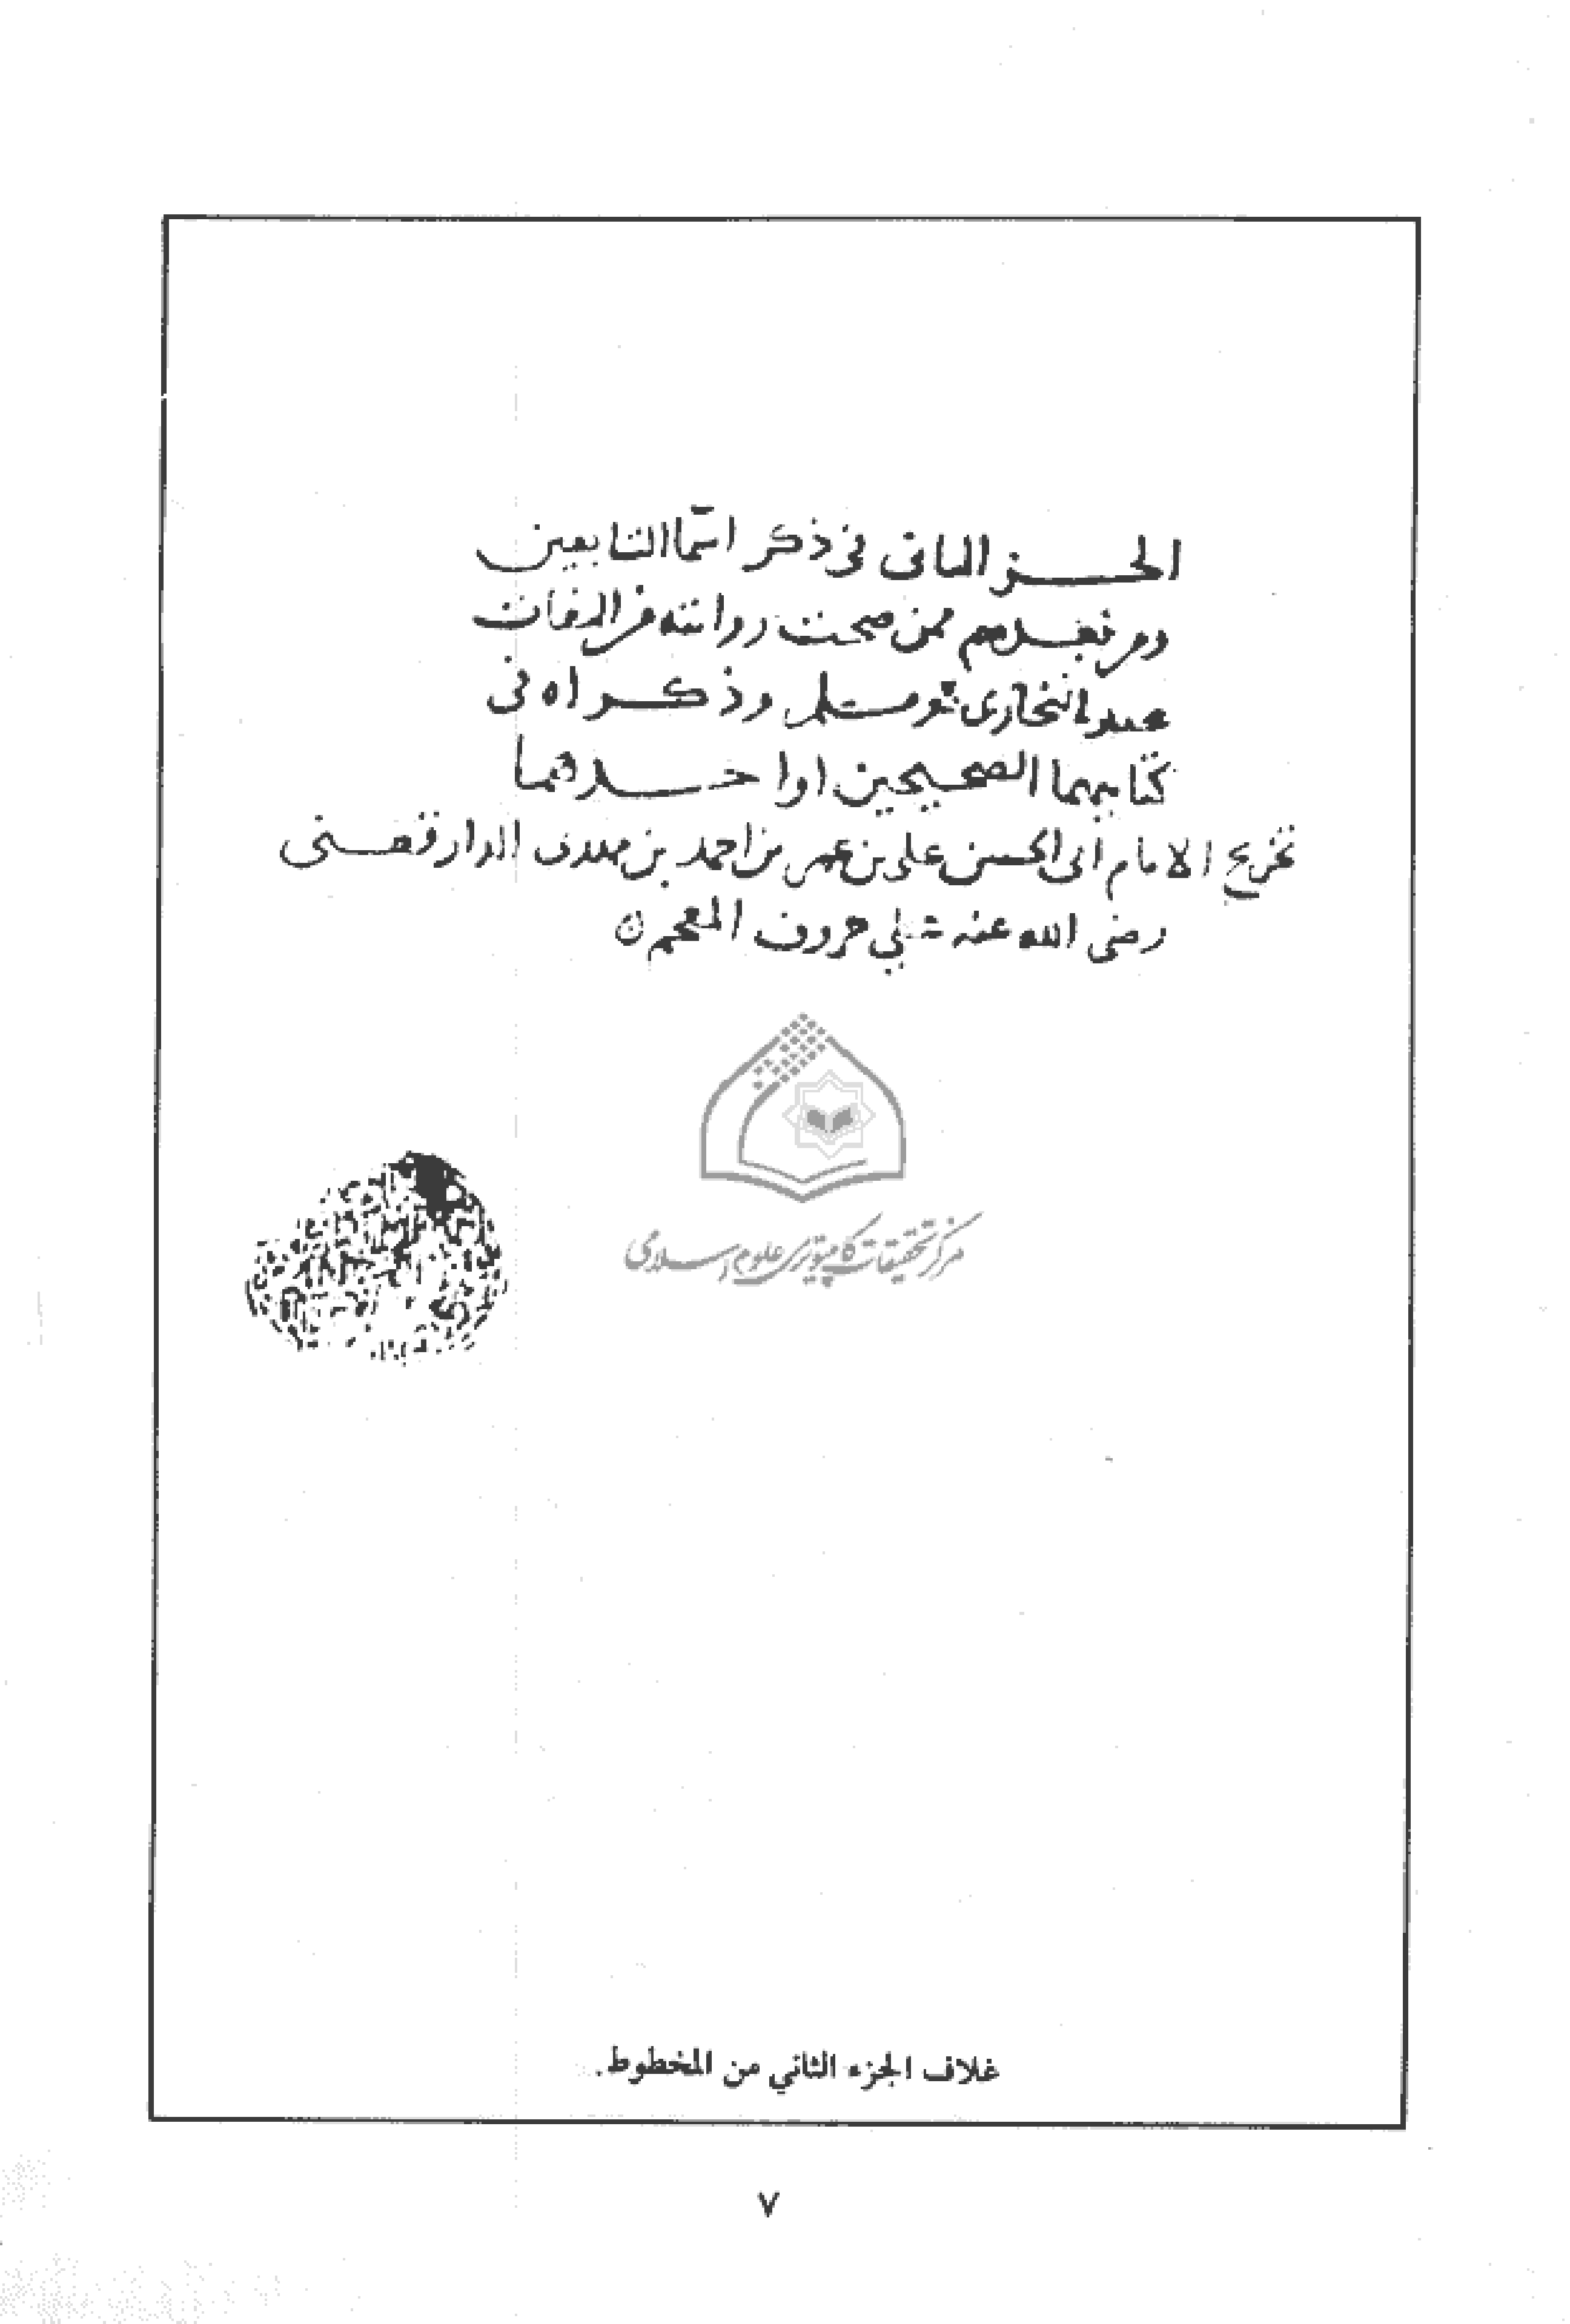 الجزء الثانى فى ذكر اسما التابعين
ومن بعدهم ممن صحت روايته من الثقات
عند البخارى ومسلم وذكراه فى
كتابيهما الصحيحين او احدهما
تخريج الامام ابى الحسن على بن عمر بن احمد بن مهدى الدارقطنى
رضى الله عنه على حروف المعجم
مرکز تحقیقات کامپیوتری علوم اسلامی
غلاف الجزء الثاني من المخطوط.
٧